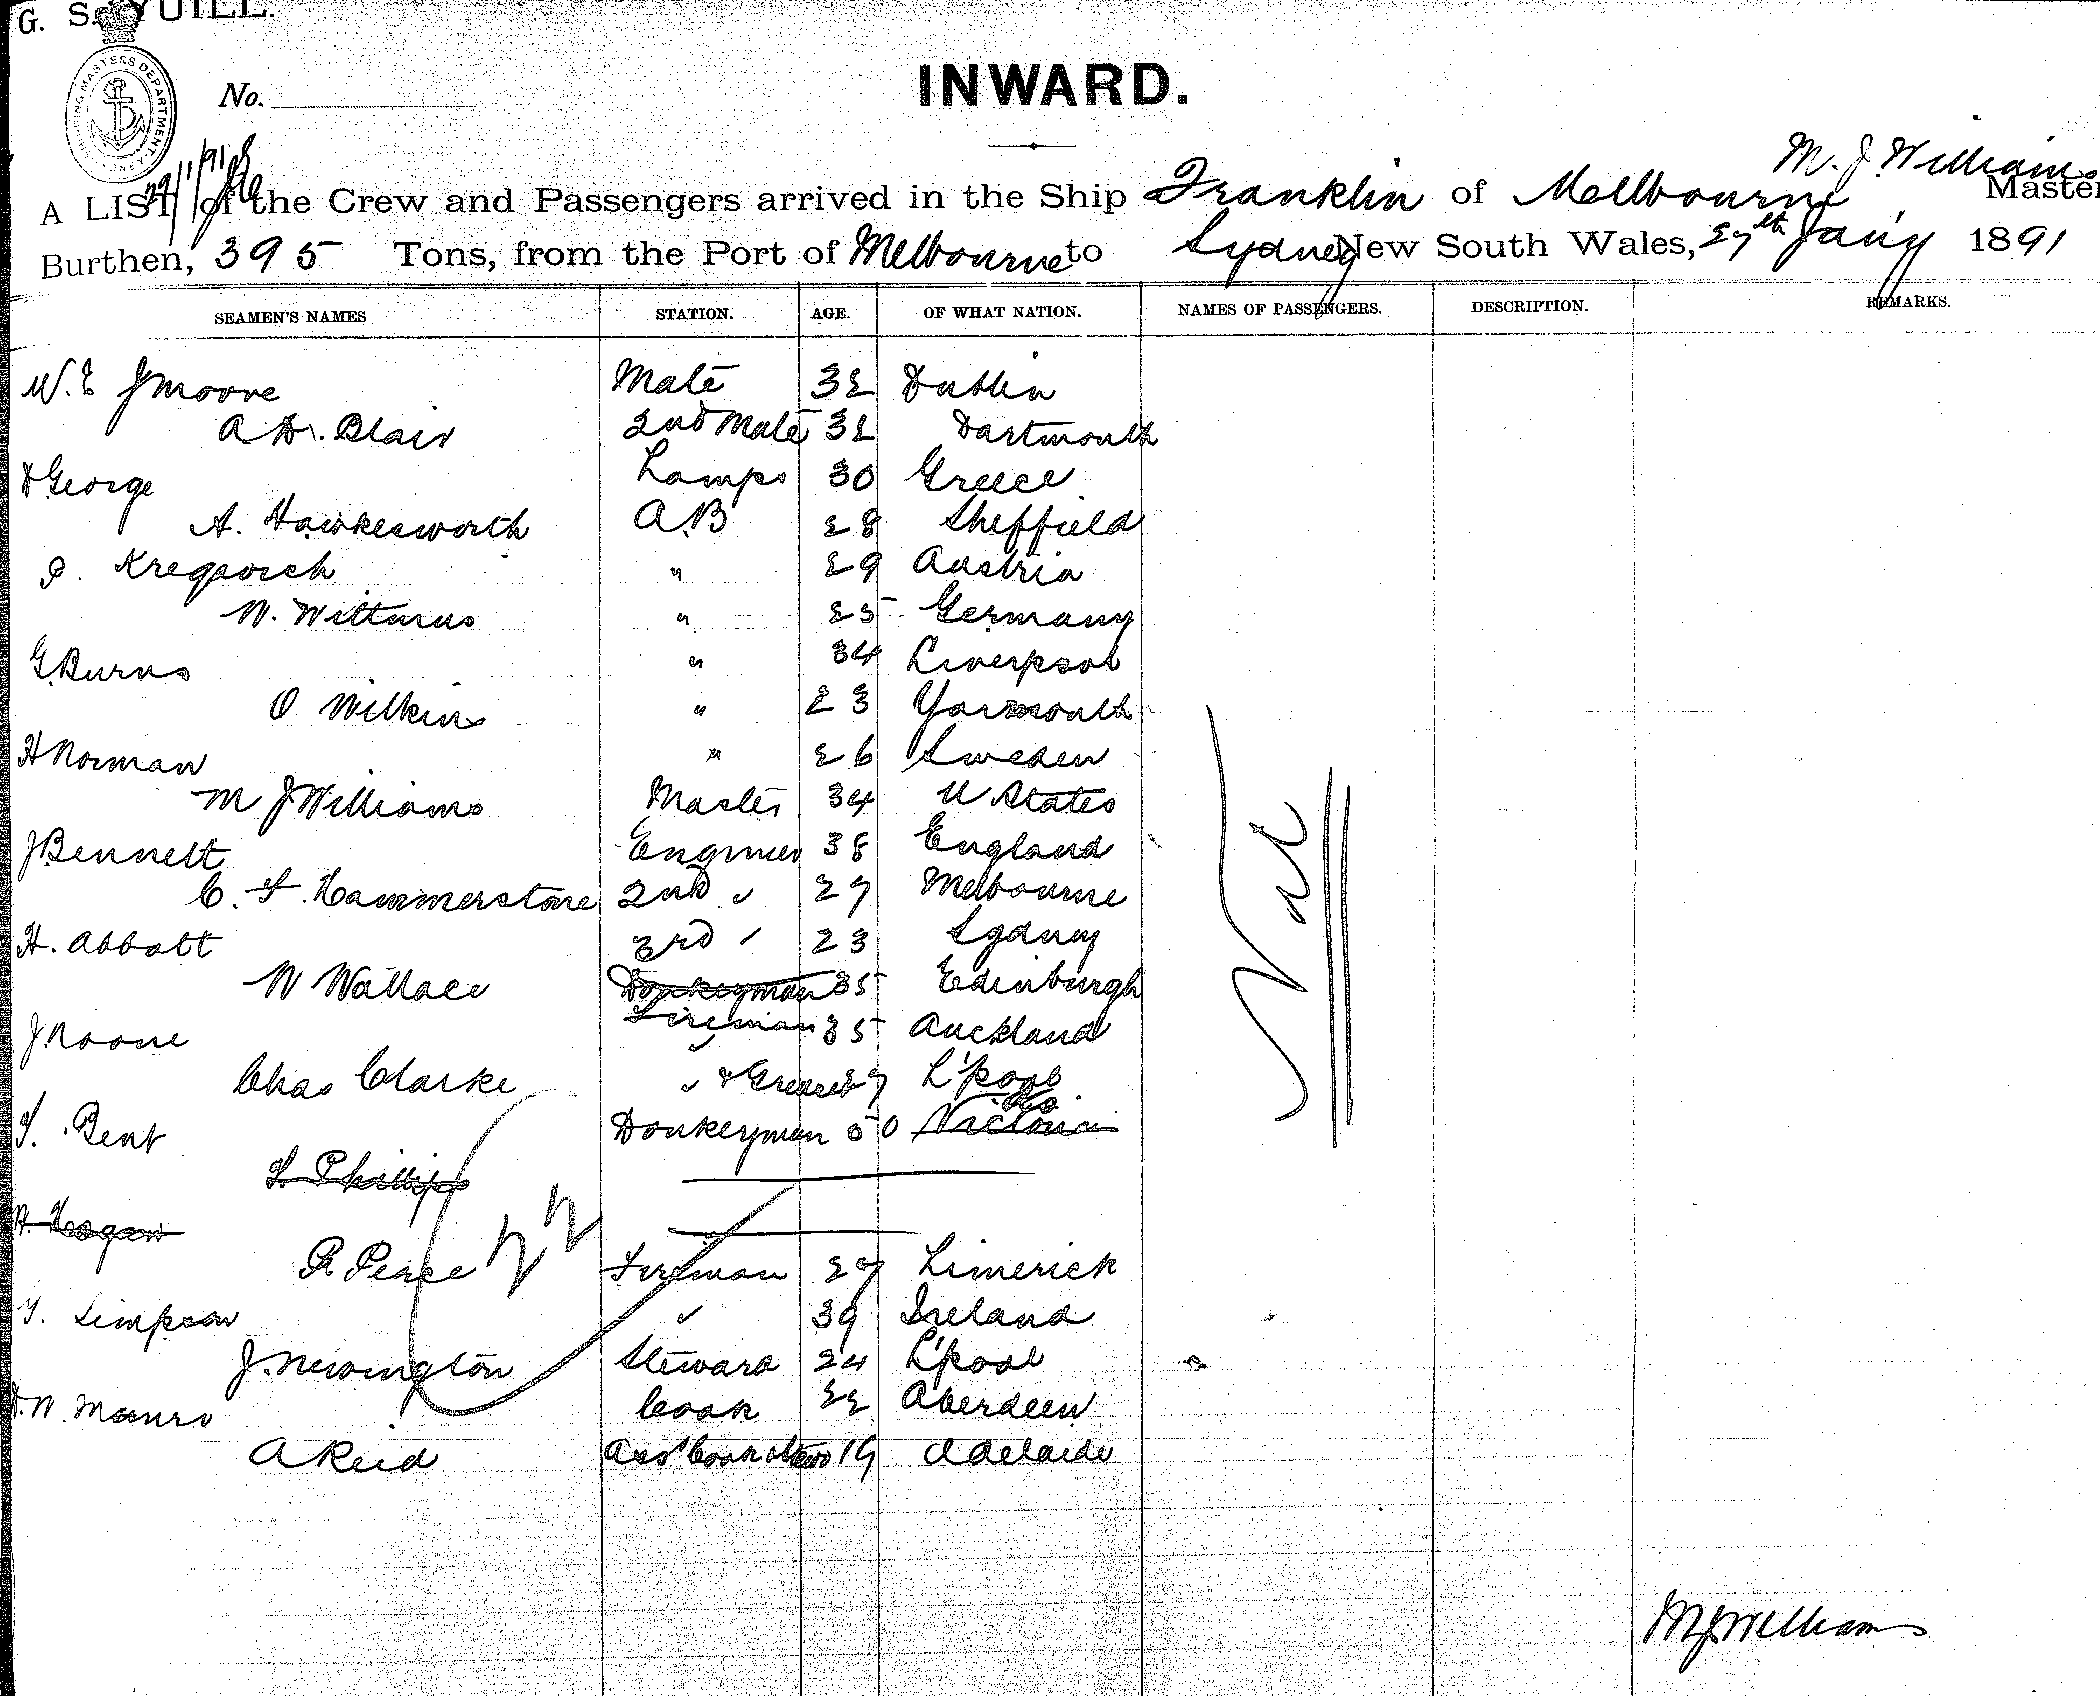 G. S. YUILL.
No.
INWARD.
M. J. Williams
A LIST of the Crew and Passengers arrived in the Ship Franklin of Melbourne Master
Burthen, 395 Tons, from the Port of Melbourne to Sydney New South Wales, 27th Jan'y 1891
SEAMEN'S NAMES STATION. AGE. OF WHAT NATION. NAMES OF PASSENGERS. DESCRIPTION. REMARKS.
W. E J Moore Mate 32 Dublin
A Blair 2nd Mate 32 Dartmouth
D George Lamps 30 Greece
A. Hawkesworth A.B 28 Sheffield
" 29 Austria
W. " 25 Germany
G. Burns " 34 Liverpool
O Wilkins " 23 Yarmouth
H Norman " 26 Sweden
M J Williams Master 34 U States
J Bennett Engineer 38 England
C. F. Hammerstone 2nd " 27 Melbourne
H. Abbott 3rd " 23 Sydney
W Wallace Donkeyman 35 Edinburgh
J Noone Fireman 35 Auckland
Chas Clarke " & Greaser 27 L'pool
Do
S. Bent Donkeyman 50 Victoria
S. Phillips
H. Hogan
P. Peirce Fireman 27 Limerick
T. Simpson " 39 Ireland
J. Newington Steward 24 L'pool
D. W. Munro Cook 22 Aberdeen
A Reid Ass' Cook 19 Adelaide
Nil
M J Williams